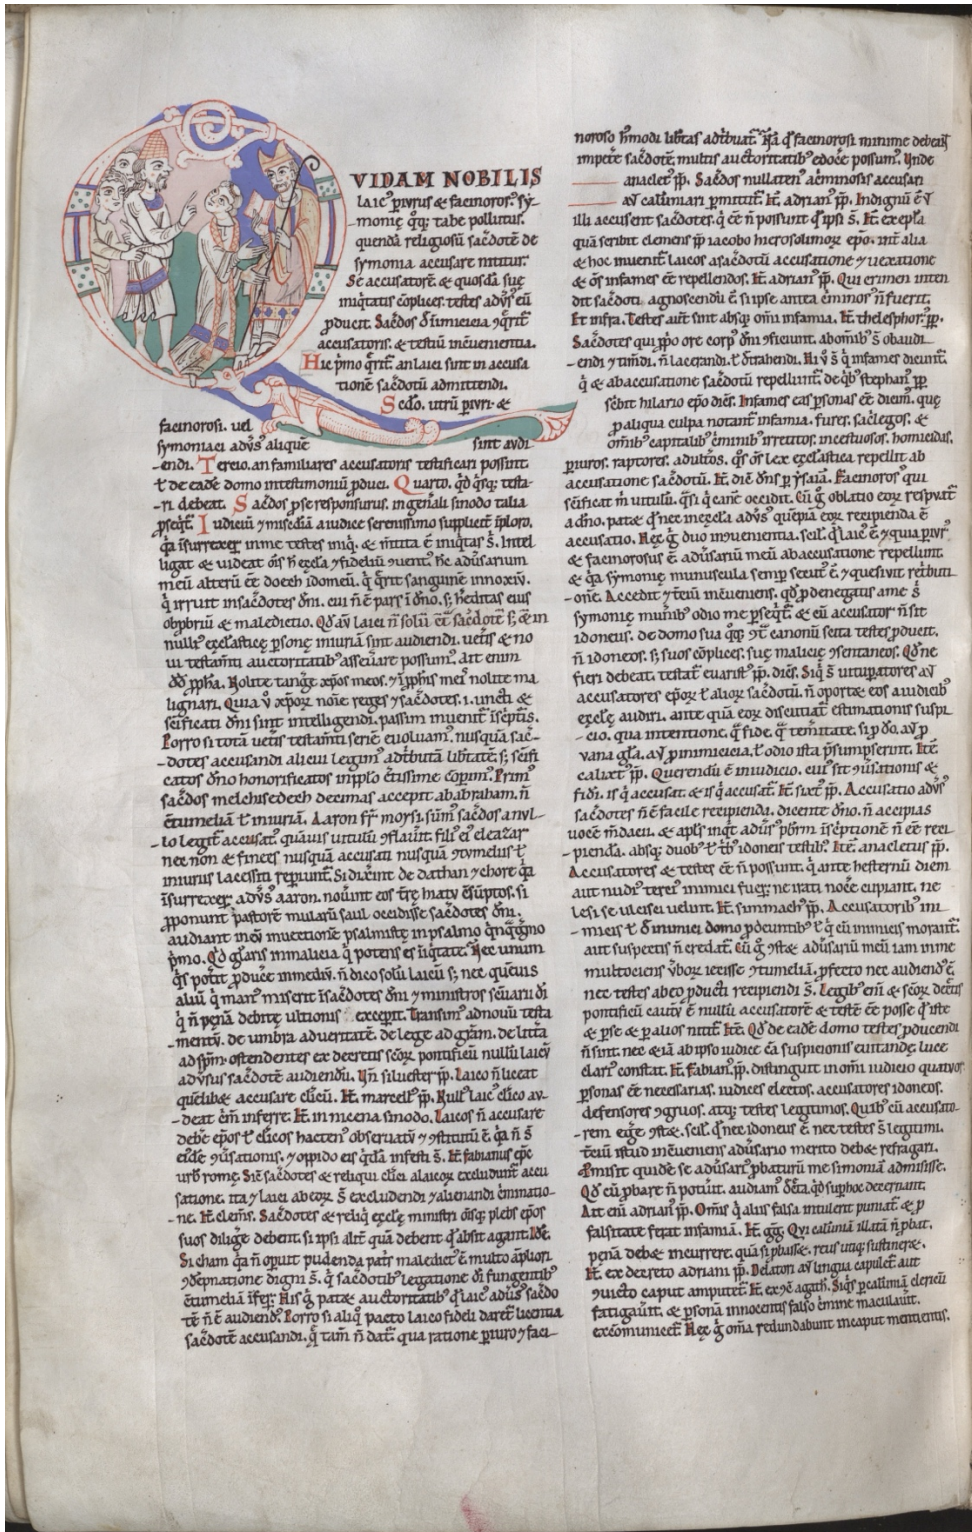 VIDAM NOBILIS
laic᷒ ꝑiurus & facinoros᷒. sy-
moniȩ q̄q; tabe pollutus.
quendā religiosū sac̄dotē de
symonia accusare nititur.
Se accusatorē & quosdā suȩ
iniq̄tatis cōplices. testes adv̄s᷒ eū
ꝓducit. Sac̄dos
accusatoris. & testiū
Hic p̄mo q̄rit᷒. an laici sint in accusa
tionē sac̄dotū admittendi.
Sc̄do. utrū ꝑiuri. &
facinorosi. uel
symoniaci adv̄s᷒ aliquē sint audi-
endi. Tercio. an familiares accusatoris testificari possint.
ł de eadē domo in testimoniū ꝓduci. Quarto. qd̄ q̄sq; testa-
ri debeat. Sac̄dos ꝑ se responsurus. in gen̄ali sinodo talia
ꝓseq̄t᷒. Iudiciū & mis̄c̄dīā a iudice serenissimo supplicit᷒ īploro.
q̄a īsurrexer̄ in me testes iniq̄. & m̄tita ē iniq̄tas s᷒. Intel
ligat & uideat
meū alterū ēē doech idomeū. q̄ q̄rit sanguinē innoxiū.
q̄ irruit in sac̄dotes dn̄i. cui n̄ ē pars ī dn̄o. s; h̄editas eius
obꝓbriū & maledictio. Qd̄ aū laici n̄ solū
nulli᷒ ȩccl̄asticȩ ꝑsonȩ iniuriā sint audiendi. uet̄is & no
ui testam̄ti auctoritatib᷒ asseu̅are possum᷒. Ait enim
dd̄ ꝓph̄a. Nolite tang̅e xp̄os meos. & ī ꝓph̄is meis nolite ma
lignari. Quia v̅ xp̄oꝝ noīe reges & sac̄dotes .i. uncti &
sc̄ificati dn̄i sint intelligendi. passim inuenit᷒ ī sc̄ptis.
Porro si totā uet̄is testam̄ti seriē euoluam᷒. nusquā sac̄-
dotes accusandi alicui legim᷒ adt̄butā lib̄tatē. s; sc̄ifi
catos dn̄o honorificatos
sac̄dos melchisedech decimas accepit ab abraham. n̄
c̄tumeliā ł iniuriā. Aaron fr̄ moysi. sūm᷒ sac̄dos a nul-
lo legit᷒ accusat᷒. quāuis uitulū 9flau̅it. fili᷒ ei᷒ eleazar
nec non & finees nusquā accusati nusquā 9tumeliis ł
iniuriis lacessiti rep̄iunt᷒. Si dix̅int de dathan & chore q̄a
īsurrexer̄ adv̄s᷒ aaron. nou̅int eos t̄rȩ hiatu c̄sūptos. si
ꝓponunt pastorē mularū saul occidisse sac̄dotes dn̄i.
audiant in eū inuectionē psalmistȩ in psalmo q̄nq̄g̅mo
p̄mo. Qd̄ gl̄aris in malicia q̄ potens es īiq̄tate. Nec unum
q̄s pot̄it ꝓduc̅e in mediū. n̄ dico solū laicū s; nec quēuis
aliū q̄ man᷒ miserit ī sac̄dotes dn̄i & ministros sc̄uarii dī
q̄ n̄ pȩnā debitȩ ultionis exceperit. Transim᷒ ad nouū testa
mentū. de umbra ad ueritatē. de lege ad gr̄am. de litt̄a
ad sp̄m. ostendentes ex decretis sc̄oꝝ pontificū nullū laicū
adv̄sus sac̄dotē audiendū. Vn̄ siluester pp̄. Laico n̄ liceat
quēlib& accusare cl̄icū. It̄ marcell᷒ pp̄. Null᷒ laic᷒ cl̄ico au-
deat c̄m̅ inferre. It̄ in nicena sinodo. Laicos n̄ accusare
deb̅e ep̄os ł cl̄icos hacten᷒ obseruatū & 9stitutū ē. q̄a n̄ s̄
ei᷒dē 9u̅sationis. & oppido eis q̄dā infesti s̄. It̄ fabianus ep̄c
urb᷒ romȩ. Sic̄ sac̄dotes & reliqui cl̄ici a laicoꝝ excludunt᷒ accu
satione. ita & laici ab eoꝝ s̄ excludendi & alienandi c̄minatio-
ne. It̄ clem̄s. Sac̄dotes & reliq̄ ȩccl̄ȩ ministri om̅sq; plebs ep̄os
suos dilig̅e debent. si ipsi alit᷒ quā debent q̄ absit agant. Idē.
Si cham q̄a n̄ opuit pudenda patris maledict᷒ ē. multo āpliori
9dēpnatione digni s̄. q̄ sac̄dotib᷒ legatione dī fungentib᷒
c̄tumeliā īfer̄. His q̄ pat& auctoritatib᷒ q̄ laic᷒ adūs᷒ sac̄do
tē n̄ ē audiend᷒. Porro si aliq̄ pacto laico fideli daret᷒ licentia
sac̄dotē accusandi. q̄ tam̄ n̄ dat᷒. qua ratione ꝑiuro & faci-
noroso h᷒modi lib̄tas adt̄buat᷒. Nā q̄ facinorosi minime debeāt
impet̅e sac̄dotē. multis auctoritatib᷒ edoc̅e possum᷒. Vnde
anaclet᷒ pp̄. Sac̄dos nullaten᷒ a c̄minosis accusari
aū calūniari ꝑmittit᷒. It̄ adrian᷒ pp̄. Indignū ē ut
illi accusent sac̄dotes. q̄ ēē n̄ possunt q̄ ipsi s̄. It̄ ex ep̄l̄a
quā scribit clemens pp̄ iacobo hierosolimoꝝ ep̄o. int̄ alia
& hoc inuenit᷒. laicos a sac̄dotū accusatione & uexatione
& om̅s infames ēē repellendos. It̄ adrian᷒ pp̄. Qui crimen inten
dit sac̄doti. agnoscendū ē si ipse antea c̄minos᷒ n̄ fuerit.
Et infra. Testes aut̄ sint absq; om̅i infamia. It̄ thelesphor᷒ pp̄.
Sac̄dotes qui ꝓpo ore corp᷒ dn̄i 9ficiunt. ab om̅ib᷒ s̄ obaudi
endi & timdi. n̄ lacerandi. ł dt̄hendi.
q̄ & ab accusatione sac̄dotū repellunt᷒. de q̄b᷒ stephan᷒ pp̄
sc̄bit hilario ep̄o dic̄s. Infames eas ꝑsonas ēē dicim᷒. quȩ
ꝓ aliqua culpa notant᷒ infamia. fures. sac̄legos. &
om̅ib᷒ capitalib᷒ c̄minib᷒ irretitos. incestuosos. homicidas.
ꝑiuros. raptores. adult̄os. q̄s om̅s lex ȩccl̄astica repellit ab
accusatione sac̄dotū. It̄ dic̄ dn̄s ꝑ ysaiā. Facinoros᷒ qui
sc̄ificat m̄ uitulū. q̄si q̄ canē occidit. Cū g̅ oblatio eoꝝ respuat᷒
a dn̄o. pat& q̄ nec in ȩccl̄a adv̄s᷒ quēpiā eoꝝ recipienda ē
accusatio. Nȩc g̅ duo in 9uenientia. scil. q̄ laic᷒ ē. & quia ꝑiur᷒
& facinorosus ē. adūsariū meū ab accusatione repellunt.
& q̄a symoniȩ munuscula semꝑ secut᷒ ē. & quesiuit ret̄buti
onē. Accedit & t̄ciū in 9ueniens. qd̄ ꝓ denegatis a me s᷒
symoniȩ mun̅ib᷒ odio me ꝓseq̄t᷒. & eū accusator᷒ n̄ sit
idoneus. de domo sua q̄q; 9t̄ canonū sc̄ita testes ꝓducit.
n̄ idoneos. s; suos cōplices. suȩ maliciȩ 9sentaneos. Qd̄ ne
fieri debeat. testat᷒ euarist᷒ pp̄. dic̄s. Siq̄ s̄ uitupatores aū
accusatores ep̄oꝝ ł alioꝝ sac̄dotū. n̄ oport& eos a iudicib᷒
ȩccl̄ȩ audiri. ante quā eoꝝ discutiat᷒ estimationis suspi
cio. qua intentione. q̄ fide. q̄ tem̅itate. si ꝓ dō. aū ꝓ
uana gl̄a. aū ꝓ inimicicia. ł odio ista p̄sumpserint. Itē
calixt᷒ pp̄. Querendū ē in iudicio. cui᷒ sit 9u̅sationis &
fidi. is q̄ accusat. & is q̄ accusat᷒. It̄ sixt᷒ pp̄. Accusatio adv̄s᷒
sac̄dotes n̄ ē facile recipienda. dicente dn̄o. n̄ accipias
uocē m̄dacii. & ap̄ls inq̄t adūs᷒ p̄br̄m īsc̄ptionē n̄ ēē reci
piendā. absq; duob᷒ ł t̄b᷒ idoneis testib᷒. Itē. anacletus pp̄.
Accusatores & testes ēē n̄ possunt. q̄ ante hesternū diem
aut nudi᷒ terci᷒ inimici fuer̄. ne irati noc̅e cupiant. ne
lesi se ulcisci uelint. It̄ simmach᷒ pp̄. Accusatorib᷒ ini
micis ł d̄ inimici domo ꝓdeuntib᷒ ł q̄ cū inimicis morant᷒.
aut suspectis n̄ credat᷒. Cū g̅ 9st& adūsariū meū iam in me
multociens v̅boꝝ iecisse 9tumeliā. ꝓfecto nec audiend᷒ ē.
nec testes ab eo ꝓducti recipiendi s̄. Legib᷒ eni̅ & sc̄oꝝ dec̄tis
pontificū cautū ē nullū accusatorē & testē ēē posse q̄ iste
& ꝑ se & ꝑ alios nitit᷒. Itē. Qd̄ de eadē domo testes ꝓducendi
n̄ sint. nec & iā ab ipso iudice cā suspicionis euitandȩ luce
clari᷒ constat. It̄ fabian᷒ pp̄. distinguit in om̅i iudicio quatuor
ꝑsonas ēē necessarias. iudices electos. accusatores idoneos.
defensores 9gruos. atq; testes legitimos. Quib᷒ cū accusato-
rem eg̅e 9st&. scil. q̄ nec idoneus ē. nec testes s̄ legitimi.
t̄ciū istud in 9ueniens adūsario merito deb& refragari.
P̄misit quidē se adūsari᷒ ꝓbaturū me simoniā admisisse.
Qd̄ cū ꝓbare n̄ potuit. audiam᷒ dc̄ta. qd̄ sup hoc decernant.
Ait eni̅ adrian᷒ pp̄. Om̅is q̄ aliis falsa intulerit puniat᷒ & ꝓ
falsitate ferat infamiā. It̄ g̅g̅. Qui calūniā illatā n̄ ꝓbat.
pȩnā deb& incurrere. quā si ꝓbass&. reus utiq; sustiner&.
It̄. ex decreto adriani pp̄. Delatori aū lingua capulet᷒ aut
9uicto caput amputet᷒. It̄ ex 9c̄ agath. Siq̄s ꝑ calūniā clericū
fatigau̅it. & ꝑsonā innocentis falso c̄mine maculau̅it.
excōmunicet᷒. Nȩc g̅ om̅ia redundabunt in caput mentientis.